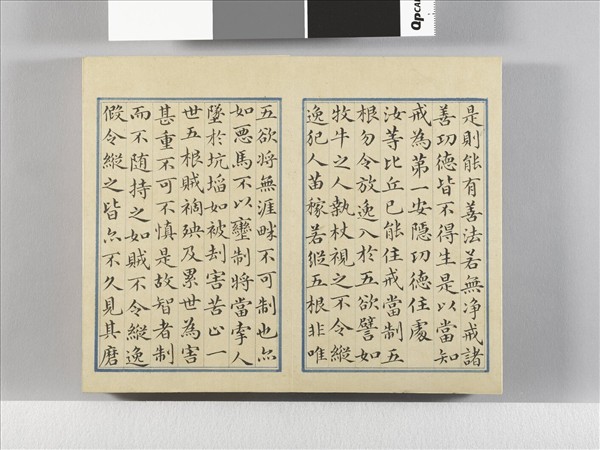 QPCA
是則能有善法若無净戒諸
善功德皆不得生是以當知
戒為第一安隱功德住處
汝等比丘已能住戒當制五
根勿令放逸入於五欲譬如
牧牛之人執杖視之不令縱
逸犯人苗稼若縱五根非唯
五欲將無涯畔不可制也亦
如惡馬不以轡制將當牽人
墜於坑埳如被刦害苦止一
世五根賊禍殃及累世為害
甚重不可不慎是故智者制
而不随持之如賊不令縱逸
假令縱之皆亦不久見其磨